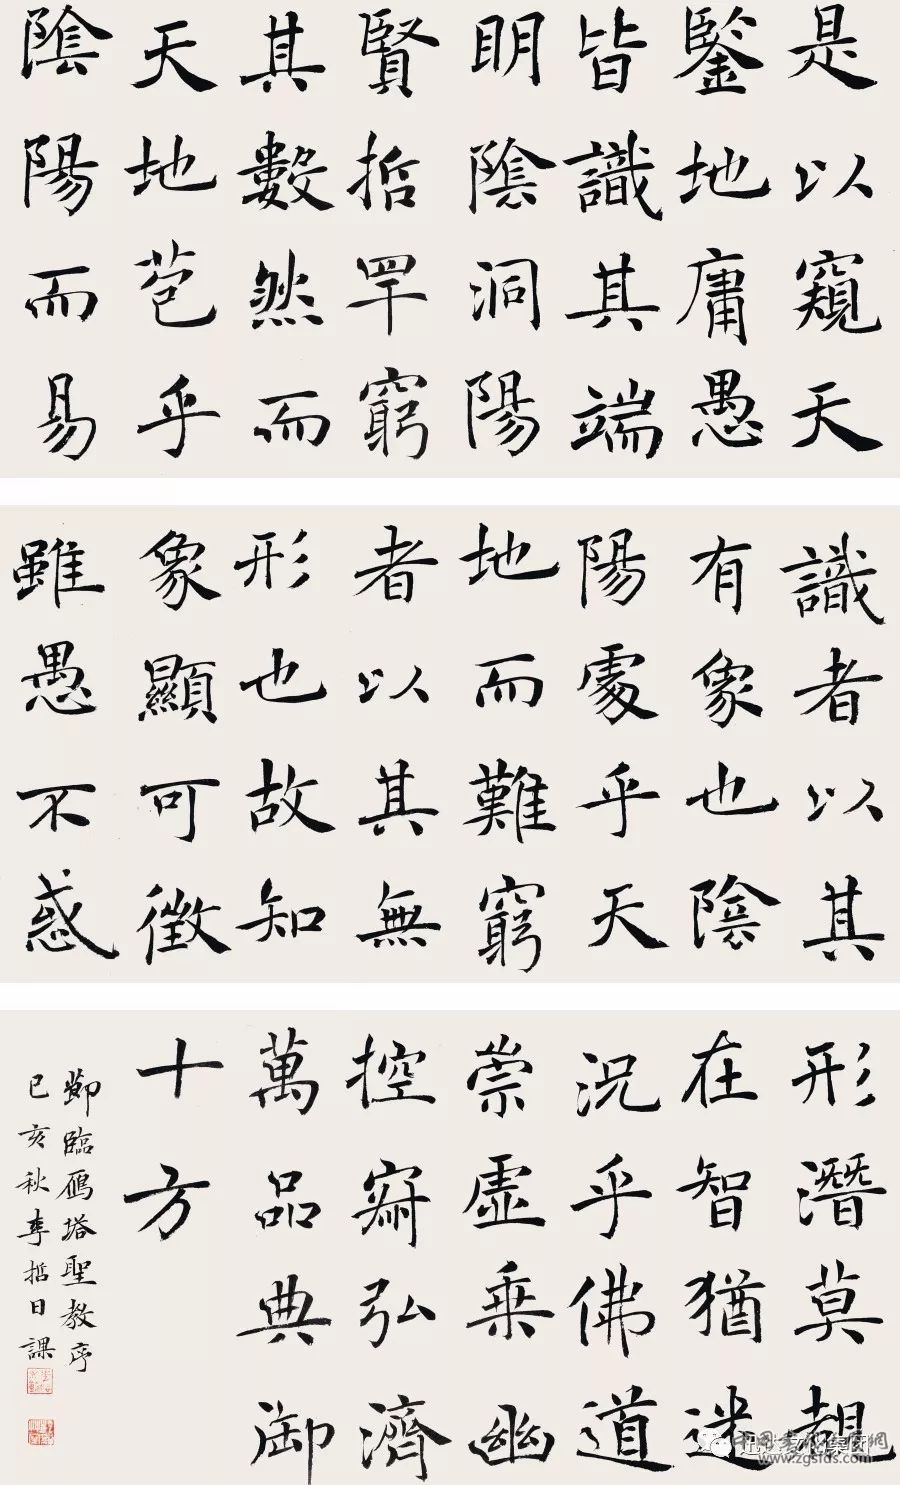 是以窺天
鑒地庸愚
皆識其端
明陰洞陽
賢哲罕窮
其數然而
天地苞乎
陰陽而易
識者以其
有象也陰
陽處乎天
地而難窮
者以其無
形也故知
象顯可徵
雖愚不惑
形潛莫覩
在智猶迷
況乎佛道
崇虛乘幽
控寂弘濟
萬品典御
十方
節臨鴈塔聖教序
己亥秋李哲日課
www.zgsfds.com